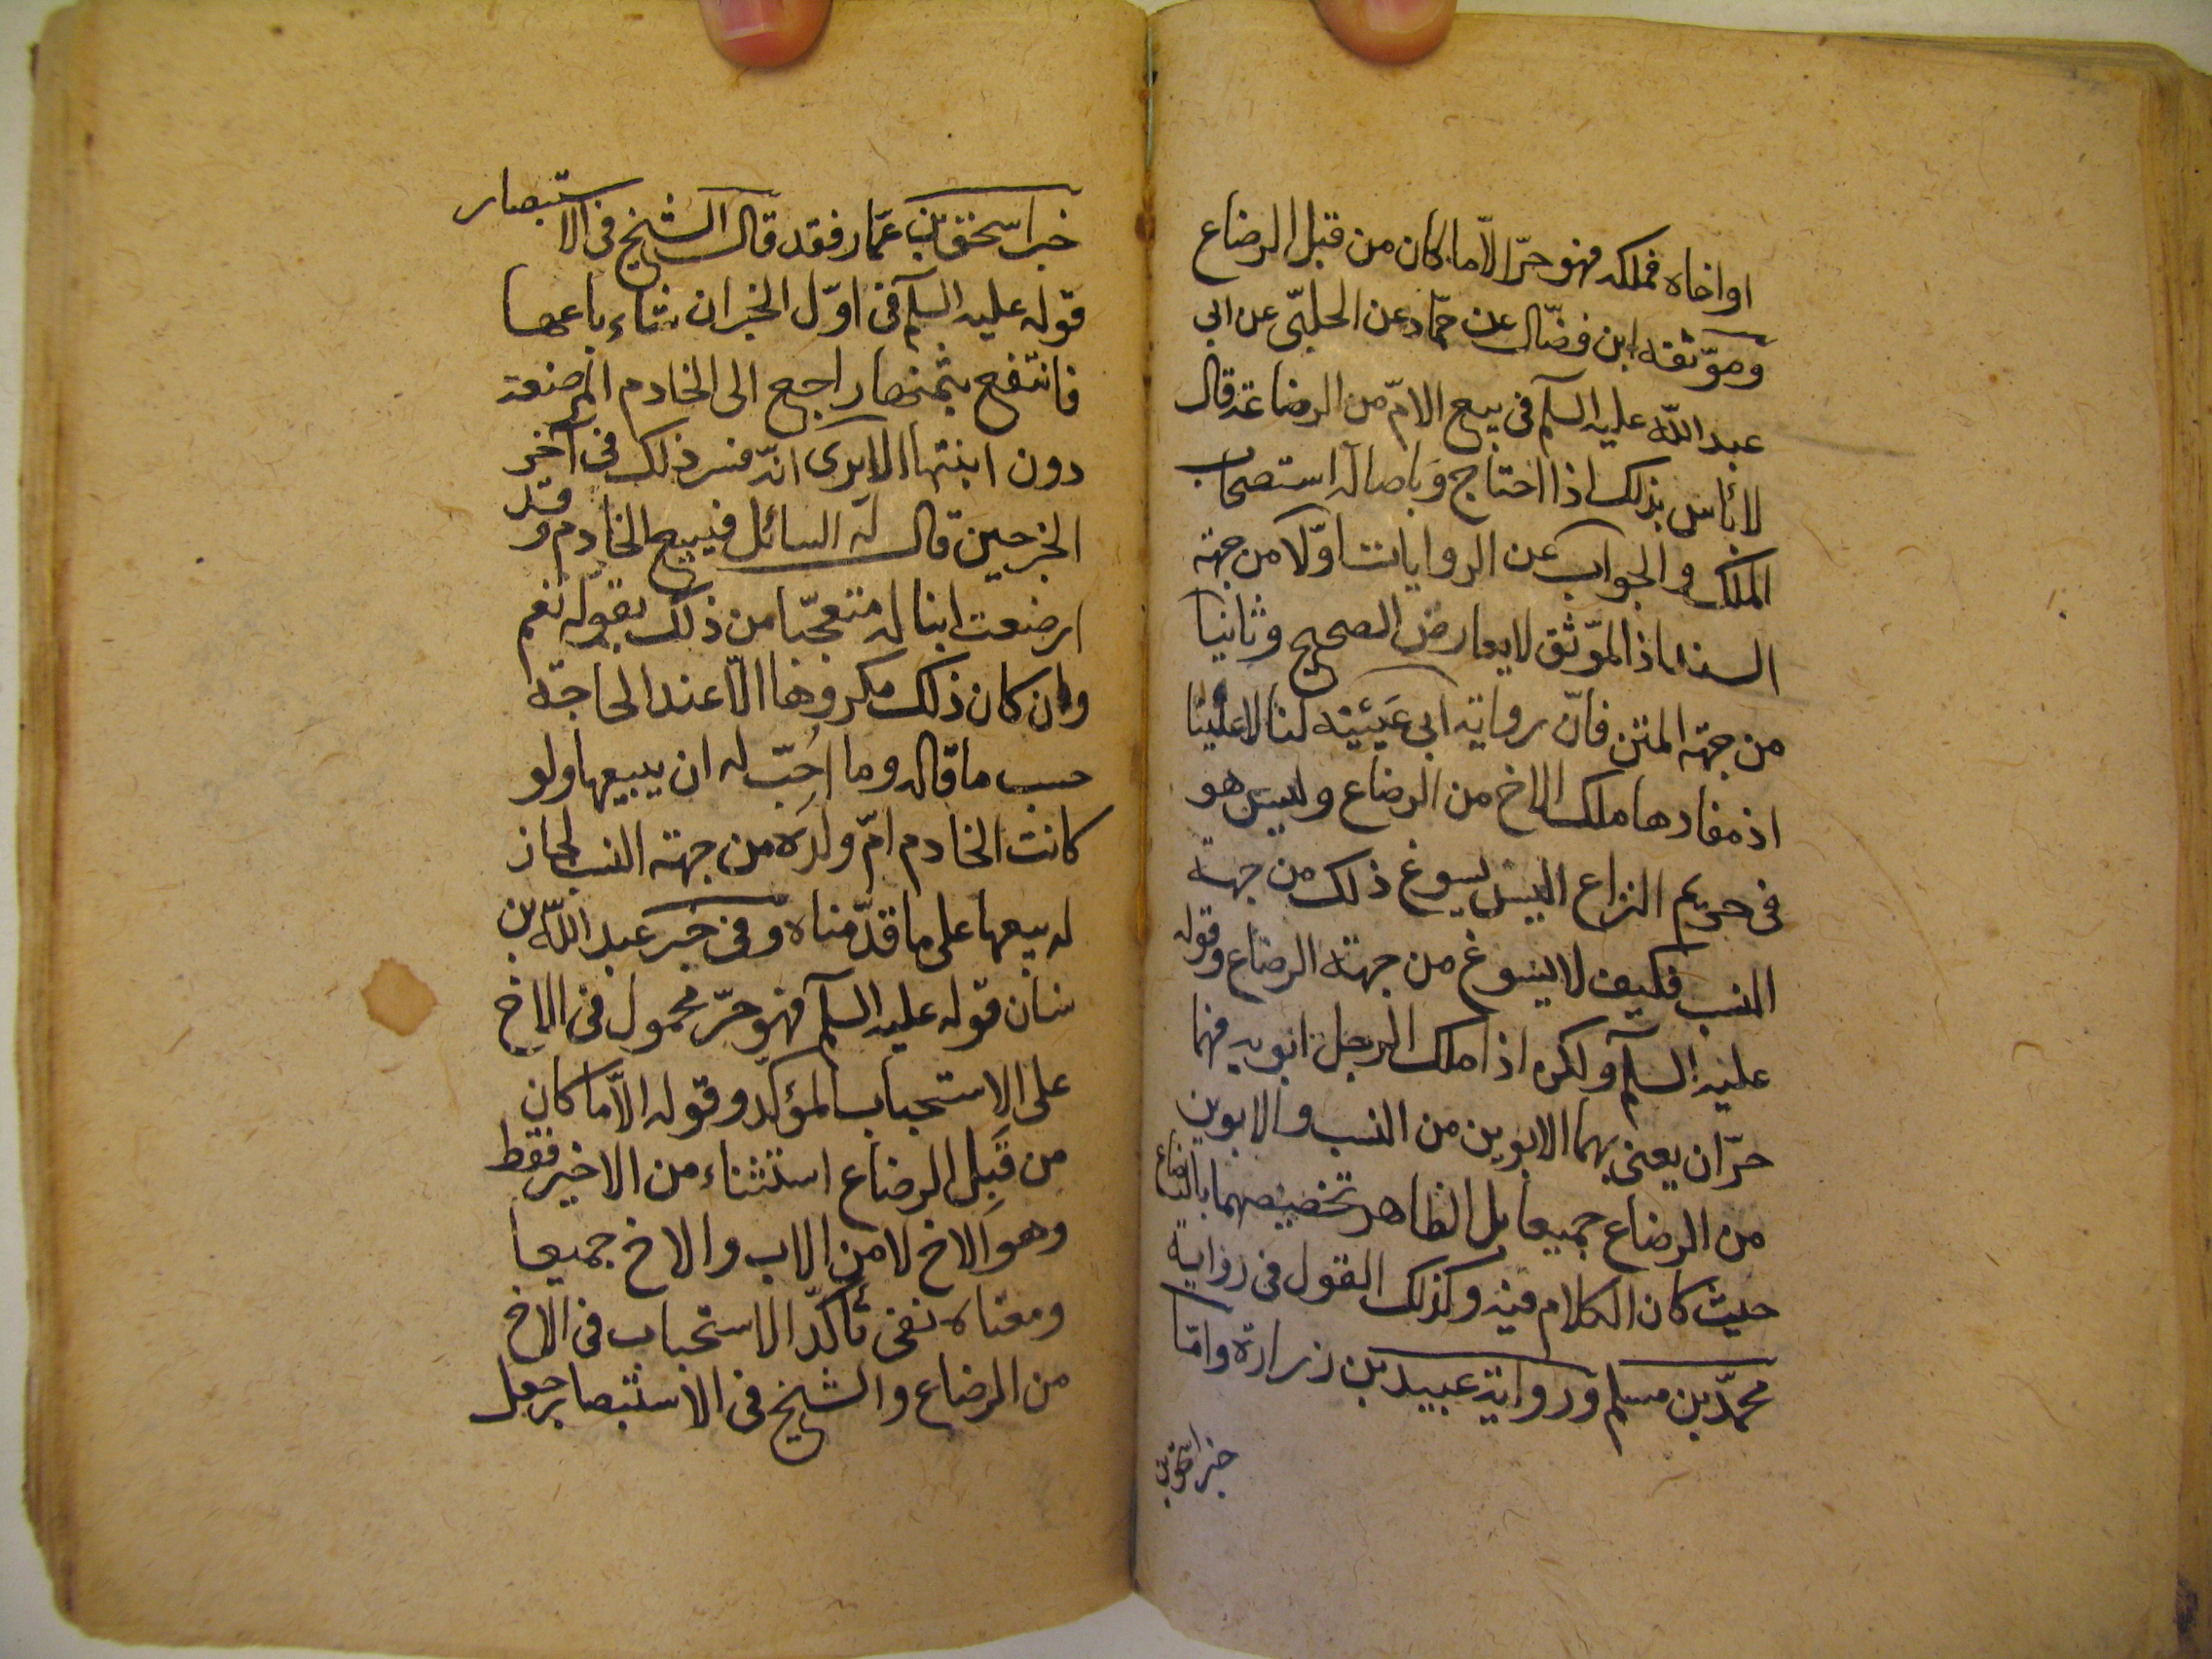 او اخاه فملكه فهو حرّ الاّ ما كان من قبل الرضاع
وموّثقه ابن فضّال عن حمّاد عن الحلبّى عن ابى
عبد اللّه عليه السلم فى بيع الامّ من الرضاعة قال
لا باس بذلك اذا احتاج وباصالة استصحاب
الملك والجواب عن الروايات اوّلا من جهة
السند اذ الموّثق لا يعارض الصحيح وثانيا
من جهة المتن فانّ رواية ابى عيينه لنا لا علينا
اذ مفادها ملك الاخ من الرضاع وليس هو
فى حريم النزاع اليس يسوغ ذلك من جهة
النسب فكيف لا يسوغ من جهة الرضاع وقوله
عليه السلم ولكن اذا ملك الرجل ابويه فهما
حرّان يعنى بهما الابوين من النسب والابوين
من الرضاع جميعا بل الظاهر تخصيصهما بالرضاع
حيث كان الكلام فيه وكذلك القول فى رواية
محمّد بن مسلم ورواية عبيد بن زرارة وامّا
خبر اسحق بن
خبر اسحق بن عمّار فقد قال الشيخ فى الاستبصار
قوله عليه السلم فى اوّل الخبر ان شاء باعها
فانتفع بثمنها راجع الى الخادم المرضعة
دون ابنتها الا يرى انّه فسر ذلك فى آخر
الخبر حين قال له السائل فيبيع الخادم وقد
ارضعت ابنا له متعجّبا من ذلك بقوله نعم
وان كان ذلك مكروها الّا عند الحاجة
حسب ما قاله وما احبّ له ان يبيعها ولو
كانت الخادم امّ ولده من جهة النسب لجاز
له بيعها على ما قدّمناه وفى خبر عبد اللّه بن
سنان قوله عليه السلم فهو حرّ محمول فى الاخ
على الاستحباب المؤكّد وقوله الاّ ما كان
من قبل الرضاع استثناء من الاخير فقط
وهو الاخ لا من الاب والاخ جميعا
ومعناه نفى تأكّد الاستحباب فى الاخ
من الرضاع والشيخ فى الاستبصار جعل